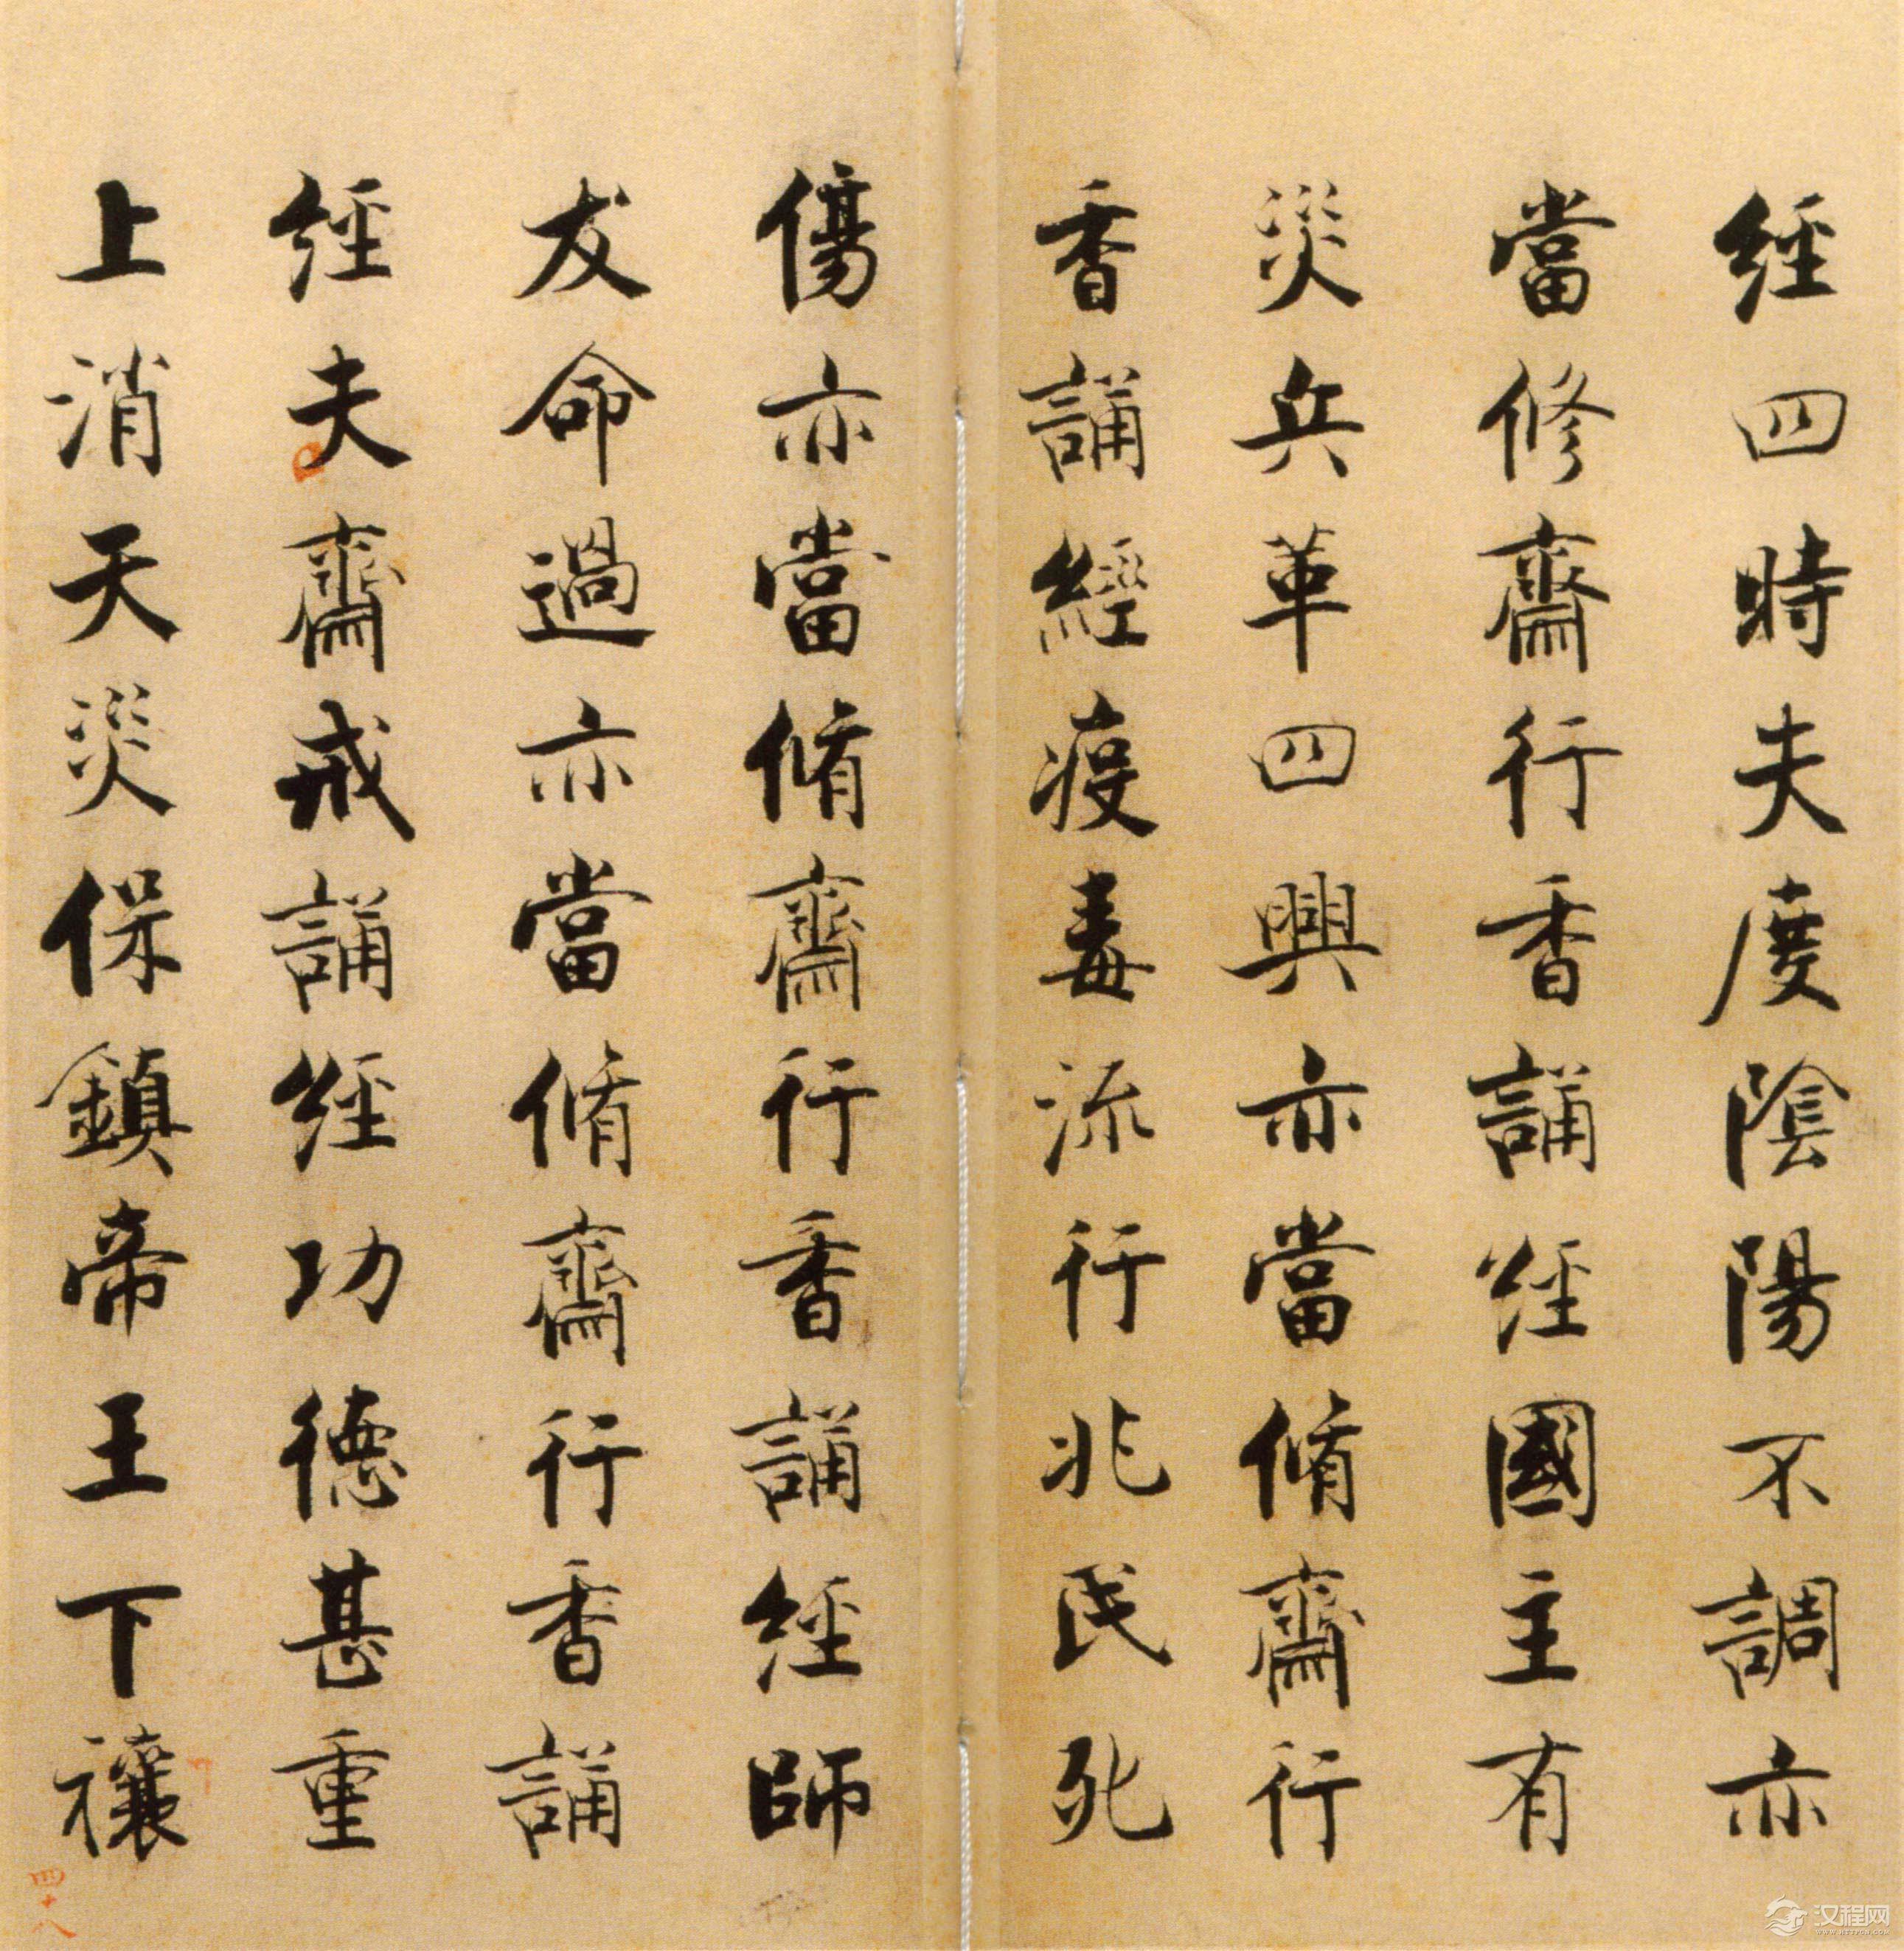 經四時失度陰陽不調亦
當修齋行香誦經國主有
災兵革四興亦當脩齋行
香誦經疫毒流行兆民死
傷亦當脩齋行香誦經師
友命過亦當脩齋行香誦
經夫齋戒誦經功德甚重
上消天災保鎮帝王下禳
四十八
汉程网
WWW.HTTPCN.COM